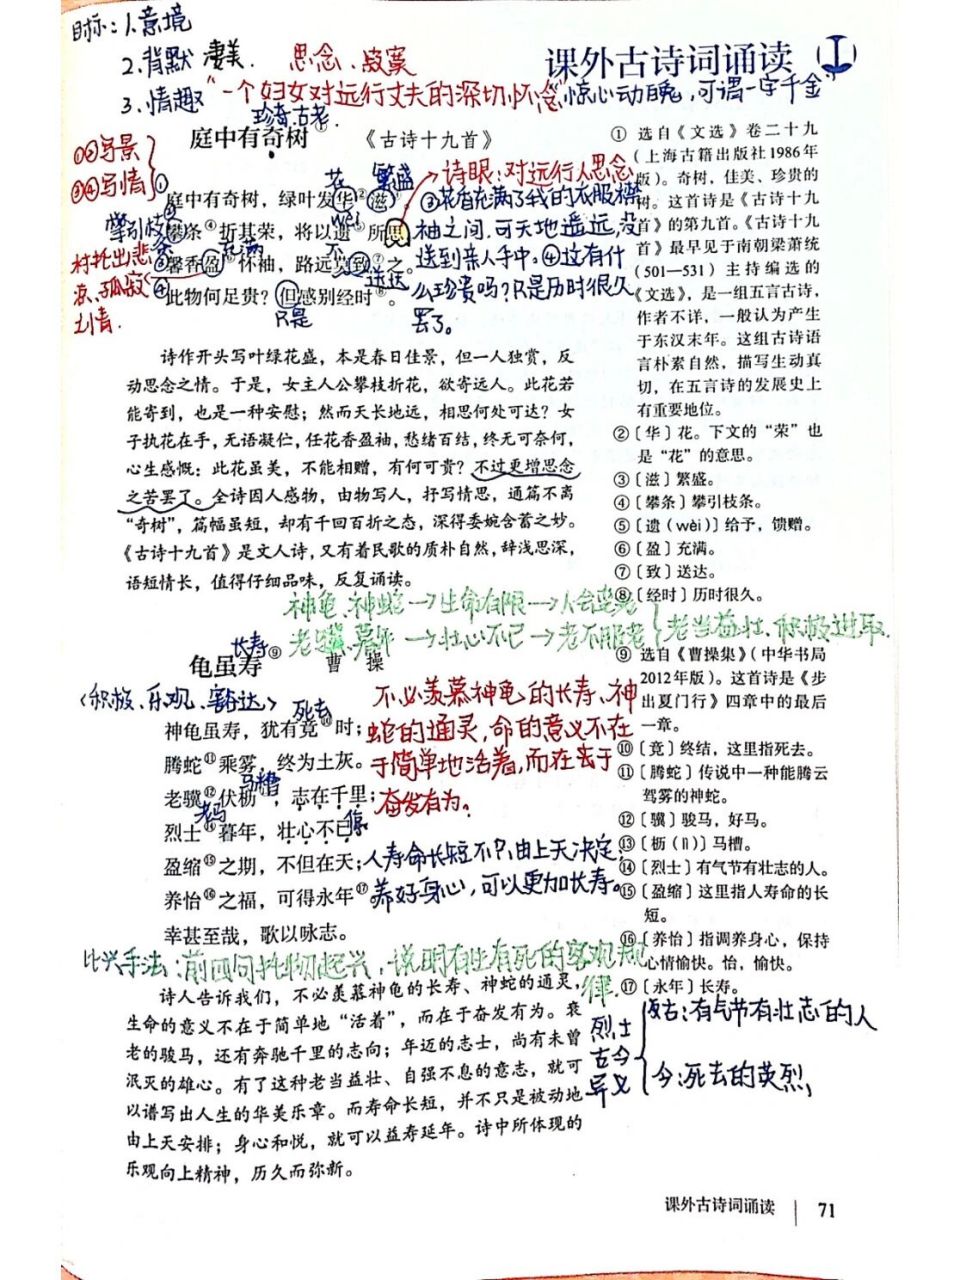 目标:1.意境
2.背默 凄美. 思念、寂寞
课外古诗词诵读
3.情趣 "一个妇女对远行丈夫的深切怀念"惊心动魄,可谓一字千金"
珍奇 古老.
庭中有奇树① 《古诗十九首》
①②写景
③④写情
花 繁盛
诗眼:对远行人思念
①庭中有奇树,绿叶发华②滋③。
攀引枝条
wèi
②攀条④折其荣,将以遗⑤所思。
充满
不 送达
③馨香盈⑥怀袖,路远莫致⑦之。
④此物何足贵?但感别经时⑧。
只是
衬托出悲
哀、孤寂
之情.
③花香充满了我的衣服襟
袖之间.可天地遥远,没
送到亲人手中。④这有什
么珍贵吗?只是历时很久
罢了。
诗作开头写叶绿花盛,本是春日佳景,但一人独赏,反
动思念之情。于是,女主人公攀枝折花,欲寄远人。此花若
能寄到,也是一种安慰;然而天长地远,相思何处可达?女
子执花在手,无语凝伫,任花香盈袖,愁绪百结,终无可奈何,
心生感慨:此花虽美,不能相赠,有何可贵?不过更增思念
之苦罢了。全诗因人感物,由物写人,抒写情思,通篇不离
“奇树”,篇幅虽短,却有千回百折之态,深得委婉含蓄之妙。
《古诗十九首》是文人诗,又有着民歌的质朴自然,辞浅思深,
语短情长,值得仔细品味,反复诵读。
① 选自《文选》卷二十九
(上海古籍出版社1986年
版)。奇树,佳美、珍贵的
树。这首诗是《古诗十九
首》的第九首。《古诗十九
首》最早见于南朝梁萧统
(501—531)主持编选的
《文选》,是一组五言古诗,
作者不详,一般认为产生
于东汉末年。这组古诗语
言朴素自然,描写生动真
切,在五言诗的发展史上
有重要地位。
②〔华〕花。下文的“荣”也
是“花”的意思。
③〔滋〕繁盛。
④〔攀条〕攀引枝条。
⑤〔遗(wèi)〕给予,馈赠。
⑥〔盈〕充满。
⑦〔致〕送达。
⑧〔经时〕历时很久。
神龟、神蛇→生命有限→人会变老
老骥、暮年→壮心不已→老不服老
老当益壮、积极进取.
长寿
龟虽寿⑨ 曹 操
<积极、乐观、豁达>
死去
神龟虽寿,犹有竟⑩时;
腾蛇⑪乘雾,终为土灰。
马槽
老骥⑫伏枥⑬,志在千里;
老马
停
烈士⑭暮年,壮心不已。
盈缩⑮之期,不但在天;
养怡⑯之福,可得永年⑰。
幸甚至哉,歌以咏志。
不必羡慕神龟的长寿、神
蛇的通灵,命的意义不在
于简单地活着,而在于
奋发有为。
人寿命长短不只由上天决定,
养好身心,可以更加长寿。
比兴手法:前四句托物起兴,说明有生有死的客观规
律.
诗人告诉我们,不必羡慕神龟的长寿、神蛇的通灵,
生命的意义不在于简单地“活着”,而在于奋发有为。衰
老的骏马,还有奔驰千里的志向;年迈的志士,尚有未曾
泯灭的雄心。有了这种老当益壮、自强不息的意志,就可
以谱写出人生的华美乐章。而寿命长短,并不只是被动地
由上天安排;身心和悦,就可以益寿延年。诗中所体现的
乐观向上精神,历久而弥新。
⑨ 选自《曹操集》(中华书局
2012年版)。这首诗是《步
出夏门行》四章中的最后
一章。
⑩〔竟〕终结,这里指死去。
⑪〔腾蛇〕传说中一种能腾云
驾雾的神蛇。
⑫〔骥〕骏马,好马。
⑬〔枥(lì)〕马槽。
⑭〔烈士〕有气节有壮志的人。
⑮〔盈缩〕这里指人寿命的长
短。
⑯〔养怡〕指调养身心,保持
心情愉快。怡,愉快。
⑰〔永年〕长寿。
烈士
古今
异义
古:有气节有壮志的人
今:死去的英烈,
课外古诗词诵读 71